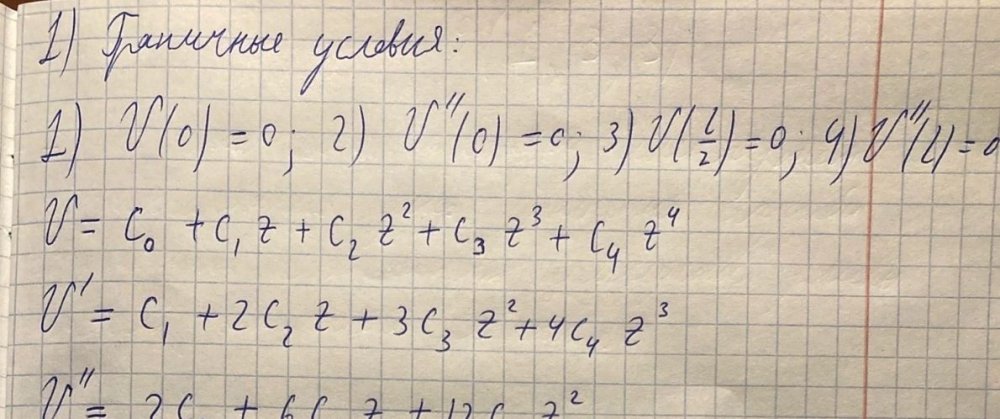 1) Граничные условия:
1) V(0) = 0; 2) V''(0) = 0; 3) V(l/2) = 0; 4) V''(l) = 0
V = C₀ + C₁ z + C₂ z² + C₃ z³ + C₄ z⁴
V' = C₁ + 2C₂ z + 3C₃ z² + 4C₄ z³
V'' = 2C + 6C z + 12C z²